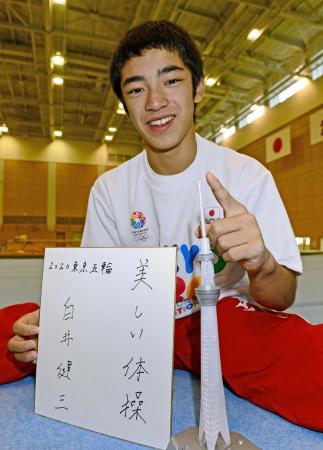 美しい体操
2020東京五輪
白井健三